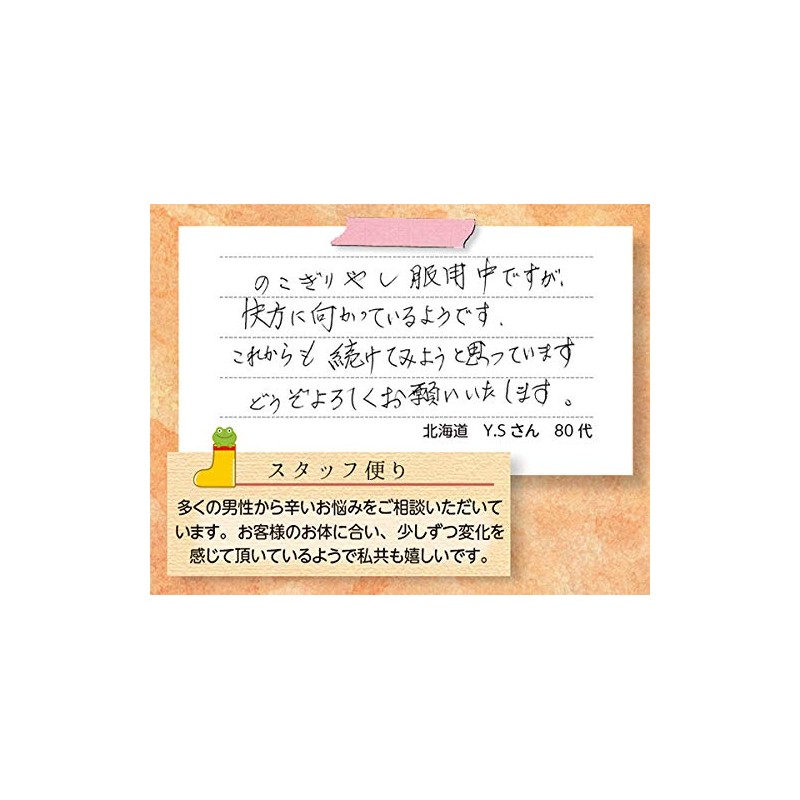 のこぎりやし服用中ですが、
快方に向かっているようです、
これからも続けてみようと思っています
どうぞよろしくお願いいたします。
北海道 Y.Sさん 80代
スタッフ便り
多くの男性から辛いお悩みをご相談いただいて
います。お客様のお体に合い、少しずつ変化を
感じて頂いているようで私共も嬉しいです。